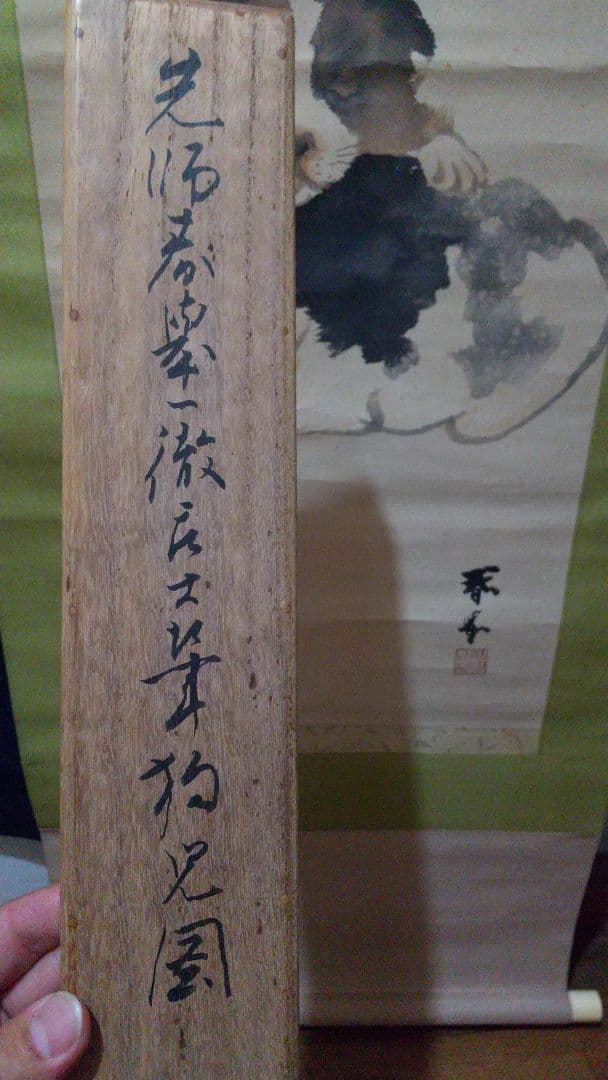 先師春擧一徹居士筆狗児圖
春挙